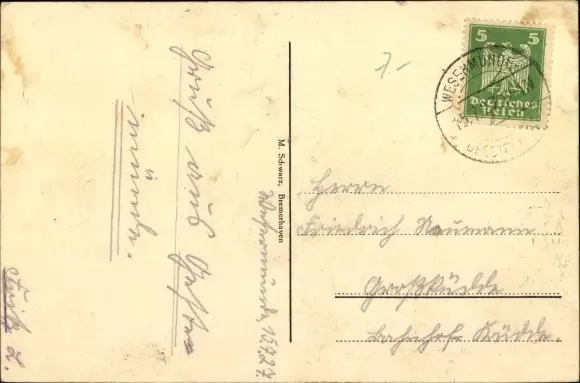 Gruß aus Geeste
münde.
Wesermünde 15.7.27
M. Schwarz, Bremerhaven
7.-
5 5
Deutsches
Reich
WESERMÜNDE
Herrn
Friedrich Naumann
Großküdde
Bahnhof Küdde.